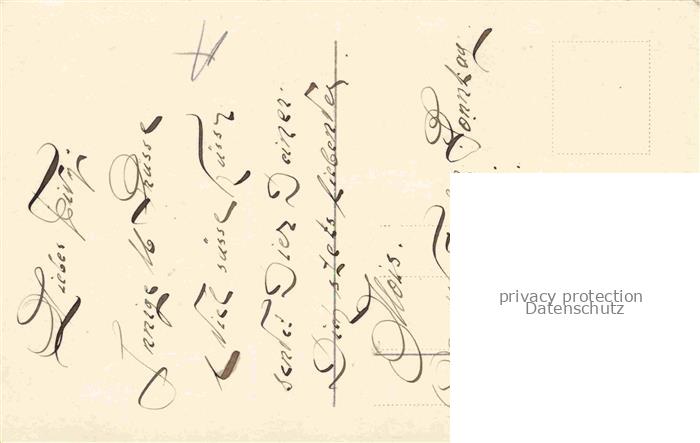 Liebes
Innige Grüsse
Viel süsse Küsse
sendet Dier Deiner
Dich stets liebender
Alois.
Sonntag
privacy protection
Datenschutz